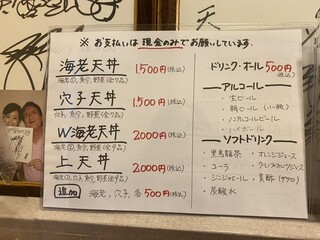 ※ お支払いは 現金のみでお願いしています.
海老天丼 1,500円(税込)
海老②, 魚介, 野菜(全7品)
穴子天丼 1,500円(税込)
穴子, 魚介, 野菜
W海老天丼 2,000円(税込)
魚介, 野菜
上天丼 2,000円(税込)
穴子, 魚介, 野菜
追加 海老, 穴子, 各500円(税込)
ドリンク・オール500円(税込)
アルコール
・生ビール
・瓶ビール (小瓶)
・ノンアルコールビール
・ハイボール
ソフトドリンク
・黒烏龍茶 ・オレンジジュース
・コーラ ・グレープフルーツジュース
・ジンジャエール ・美酢 (ザクロ)
・炭酸水